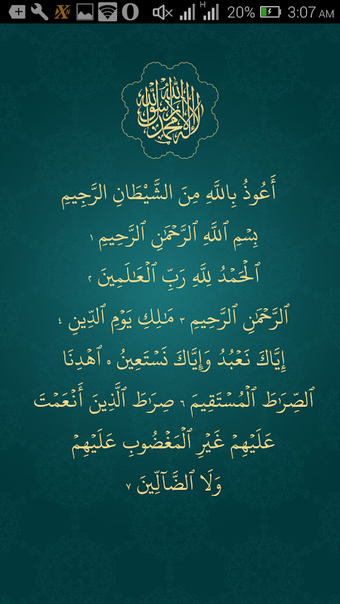 H
20% 3:07 AM
لا إله إلا الله محمد رسول الله
أَعُوذُ بِاللَّهِ مِنَ الشَّيْطَانِ الرَّجِيمِ
بِسْمِ ٱللَّهِ ٱلرَّحْمَٰنِ ٱلرَّحِيمِ ١
ٱلْحَمْدُ لِلَّهِ رَبِّ ٱلْعَٰلَمِينَ ٢
ٱلرَّحْمَٰنِ ٱلرَّحِيمِ ٣ مَٰلِكِ يَوْمِ ٱلدِّينِ ٤
إِيَّاكَ نَعْبُدُ وَإِيَّاكَ نَسْتَعِينُ ٥ ٱهْدِنَا
ٱلصِّرَٰطَ ٱلْمُسْتَقِيمَ ٦ صِرَٰطَ ٱلَّذِينَ أَنْعَمْتَ
عَلَيْهِمْ غَيْرِ ٱلْمَغْضُوبِ عَلَيْهِمْ
وَلَا ٱلضَّآلِّينَ ٧